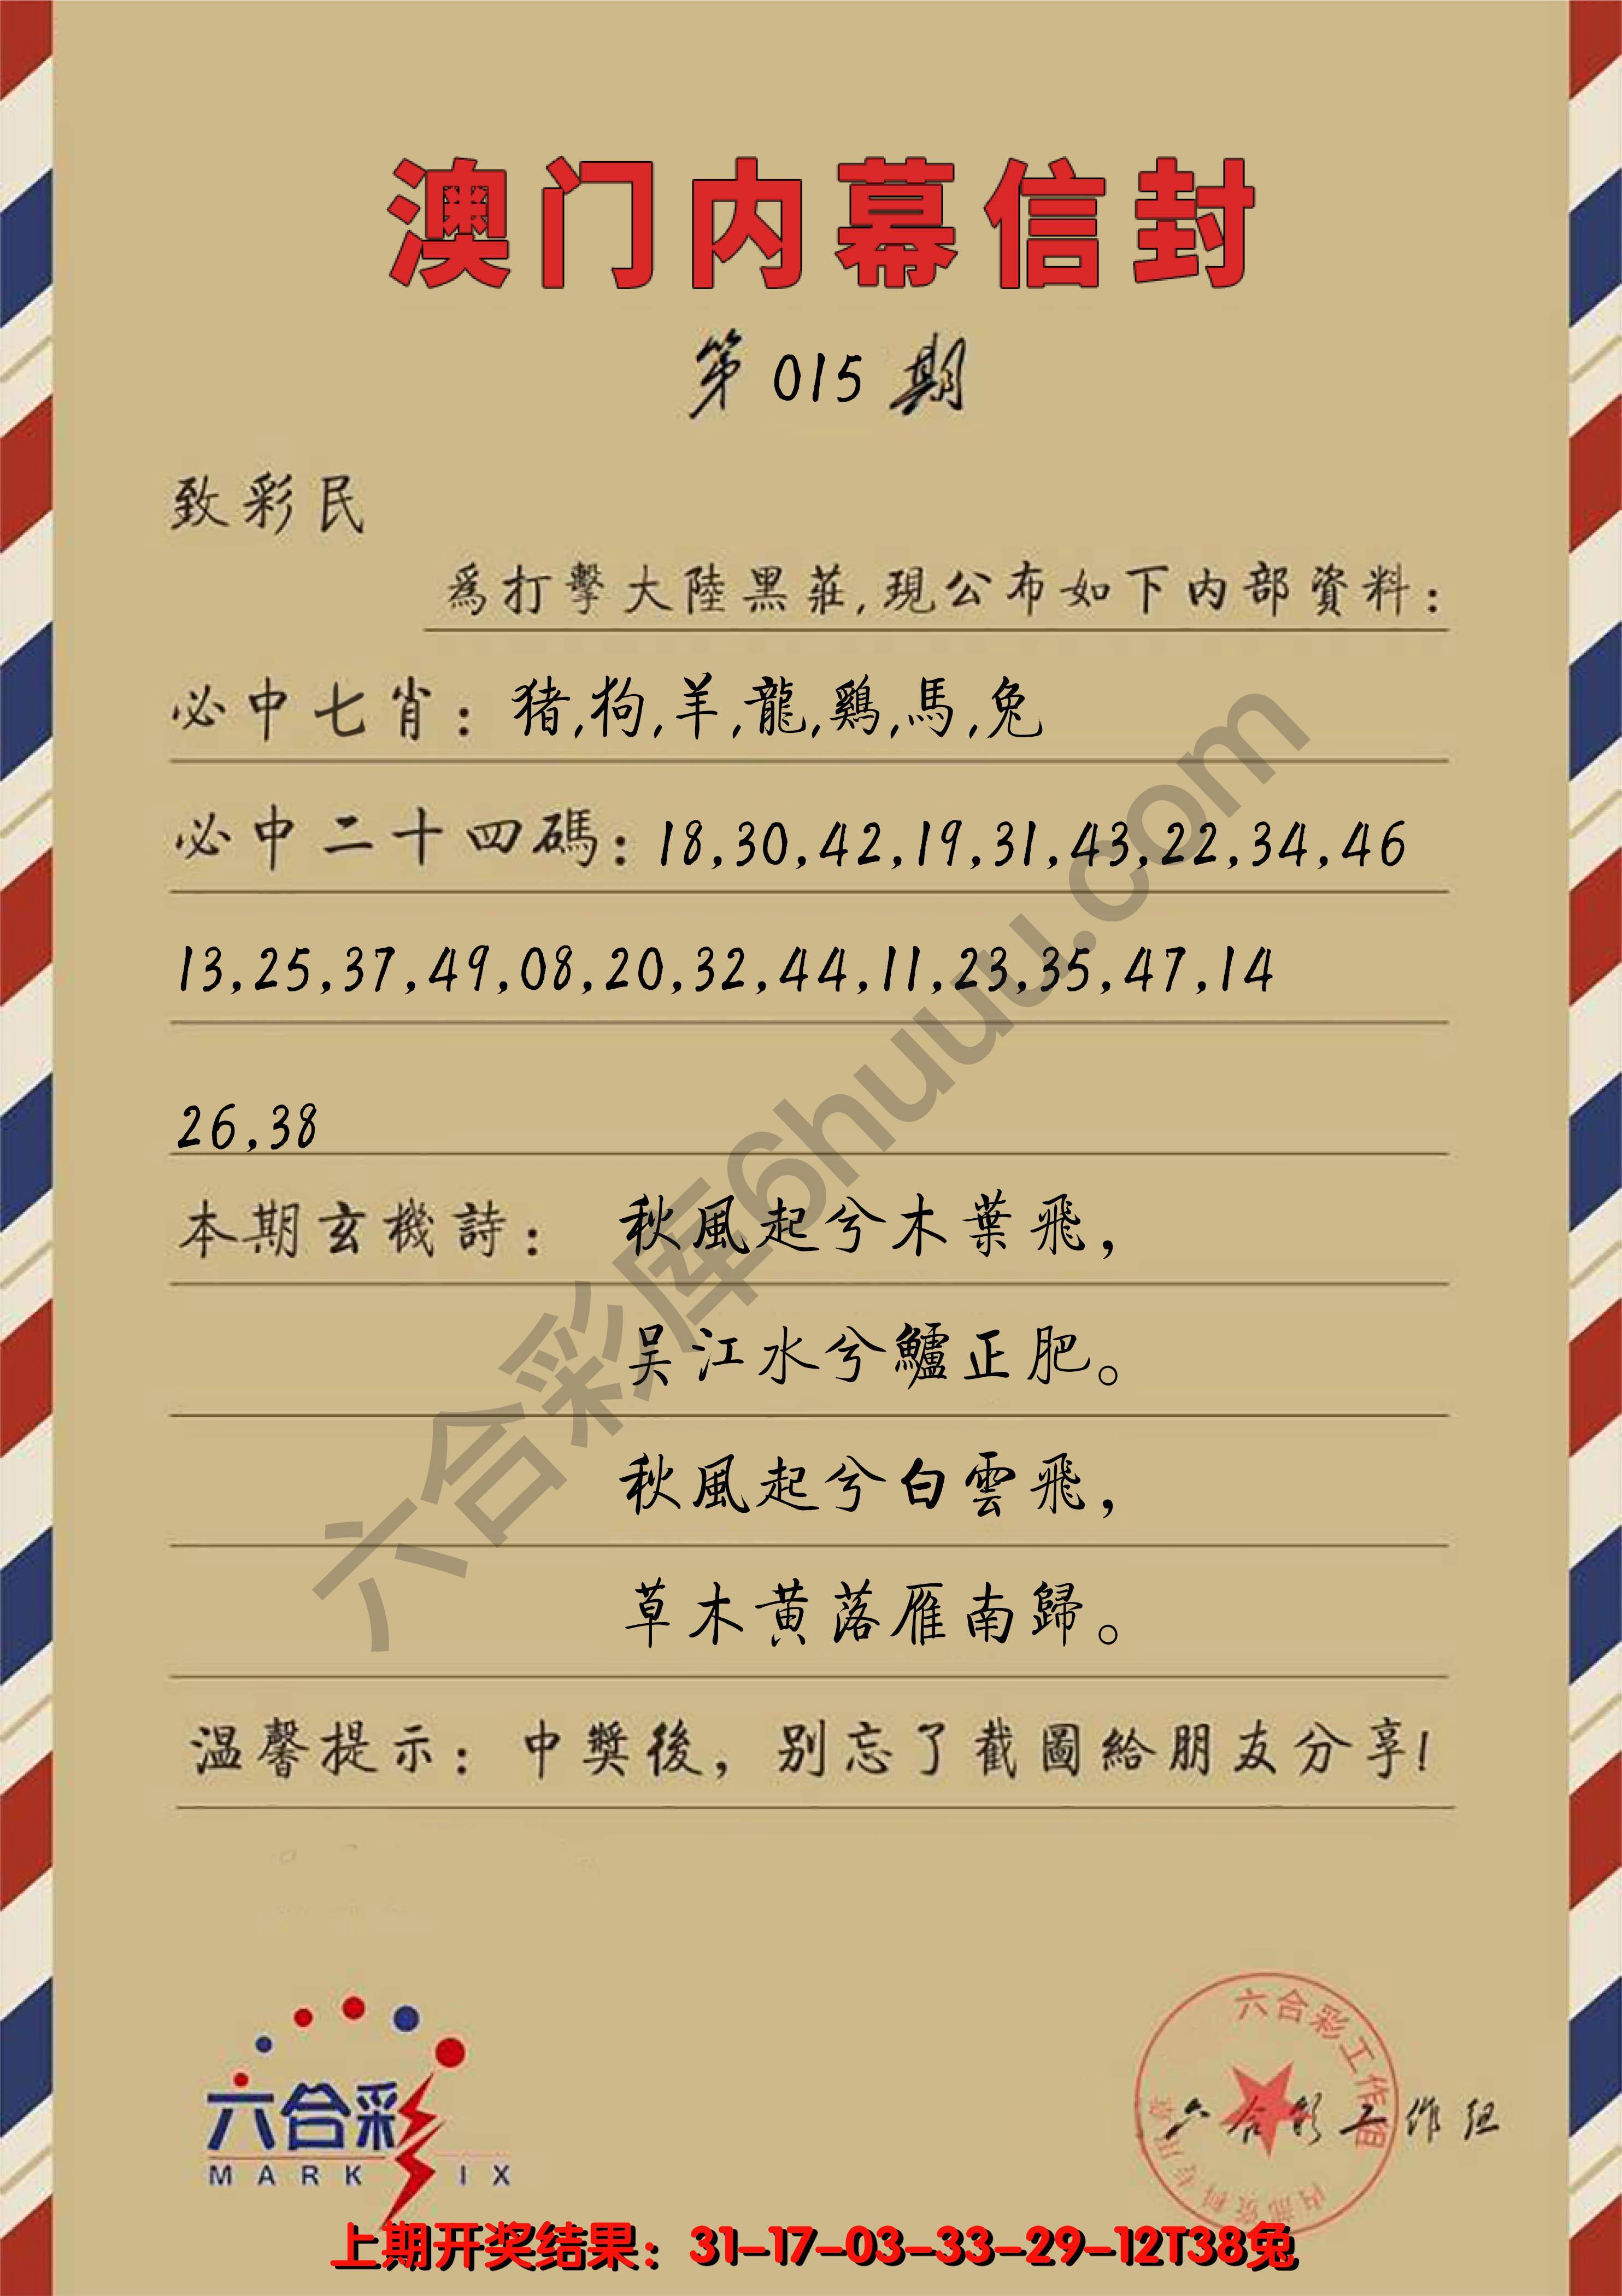 澳门内幕信封
第015期
致彩民
爲打擊大陸黑莊,現公布如下内部資料:
必中七肖:猪,狗,羊,龍,鷄,馬,兔
必中二十四碼:18,30,42,19,31,43,22,34,46
13,25,37,49,08,20,32,44,11,23,35,47,14
26,38
本期玄機詩: 秋風起兮木葉飛,
吴江水兮鱸正肥。
秋風起兮白雲飛,
草木黄落雁南歸。
温馨提示:中獎後,别忘了截圖給朋友分享!
六合彩库6huuu.com
六合彩
MARK IX
六合彩工作组
内部资料专用章
六合彩工作组
上期开奖结果:31-17-03-33-29-12T38兔